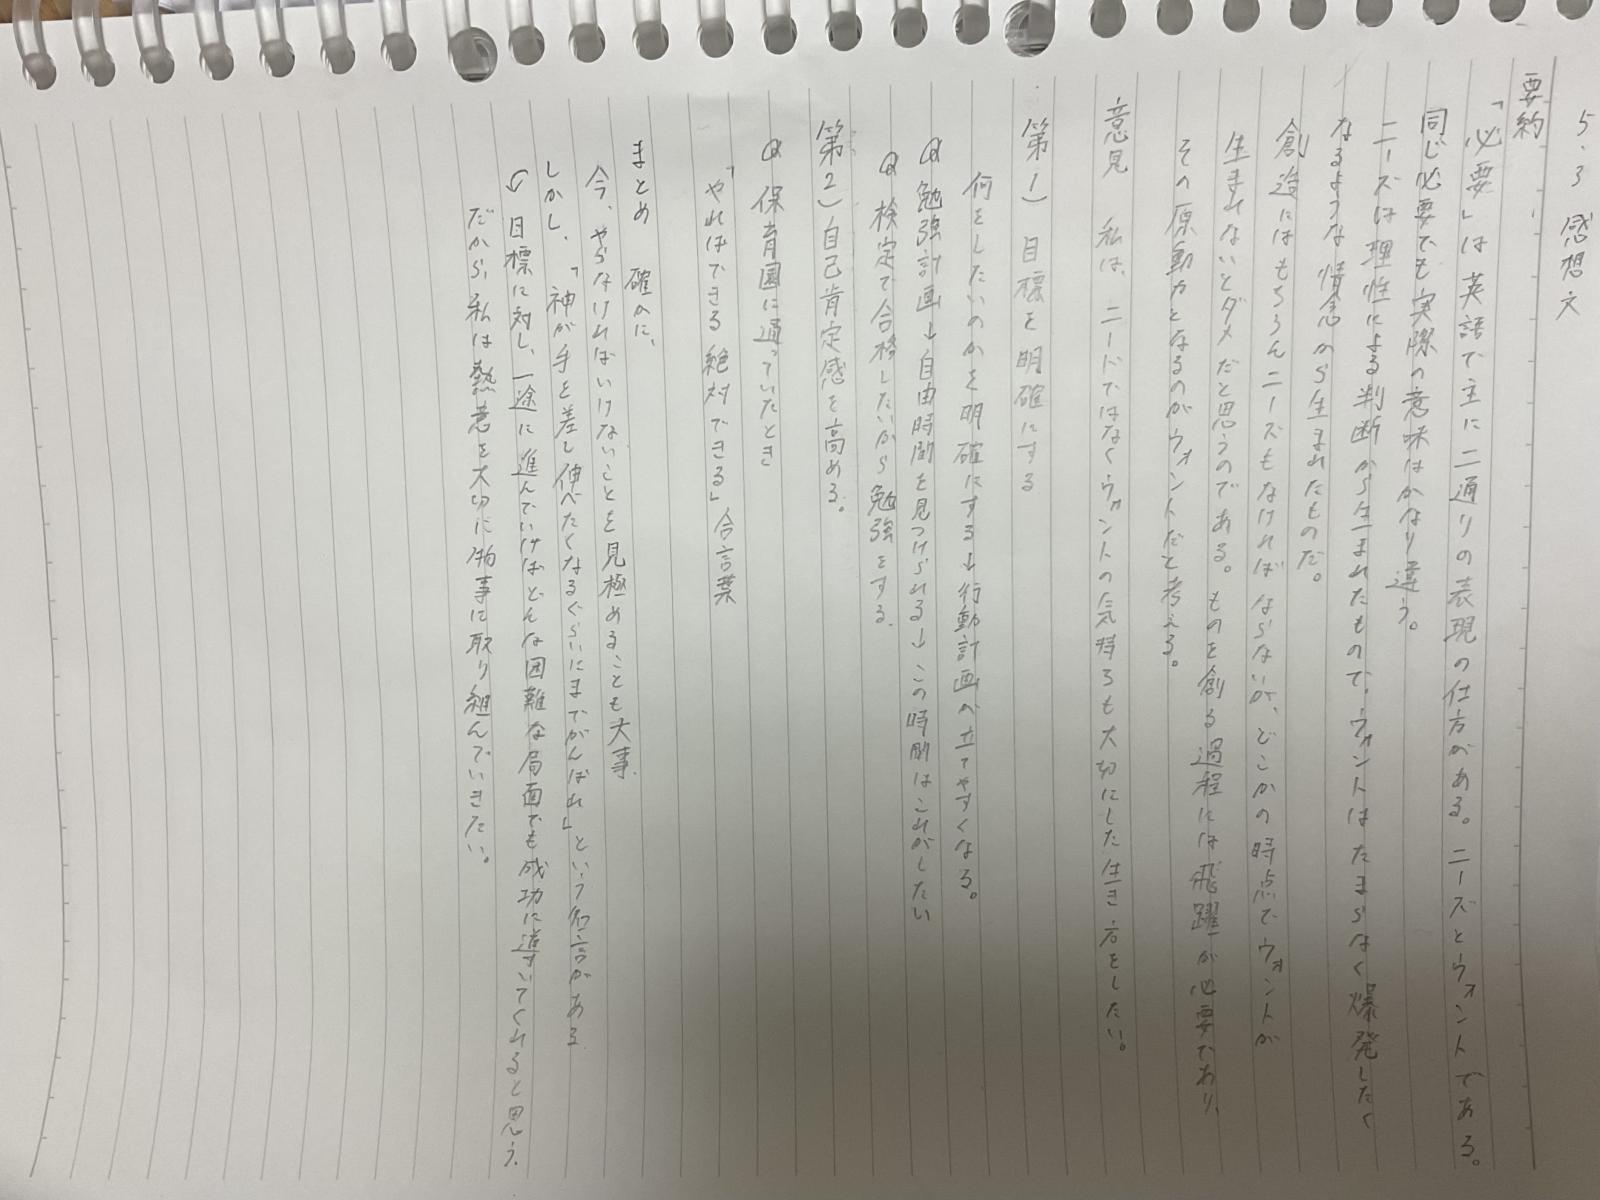 5.3 感想文
要約
「必要」は英語で主に二通りの表現の仕方がある。ニーズとウォントである。
同じ必要でも実際の意味はかなり違う。
ニーズは理性による判断から生まれたもので、ウォントはたまらなく爆発したく
なるような情念から生まれたものだ。
創造にはもちろんニーズもなければならないが、どこかの時点でウォントが
生まれないとダメだと思うのである。ものを創る過程には飛躍が必要であり、
その原動力となるのがウォントだと考える。
意見 私は、ニードではなくウォントの気持ちも大切にした生き方をしたい。
第1) 目標を明確にする
何をしたいのかを明確にする→行動計画が立てやすくなる。
@ 勉強計画→自由時間を見つけられる→この時間はこれがしたい
@ 検定で合格したいから勉強をする.
第2) 自己肯定感を高める。
@ 保育園に通っていたとき
「やればできる 絶対できる」合言葉
まとめ 確かに、
今、やらなければいけないことを見極めることも大事.
しかし、「神が手を差し伸べたくなるぐらいにまでがんばれ」という名言がある.
目標に対し、一途に進んでいけばどんな困難な局面でも成功に導いてくれると思う.
だから、私は熱意を大切に物事に取り組んでいきたい。